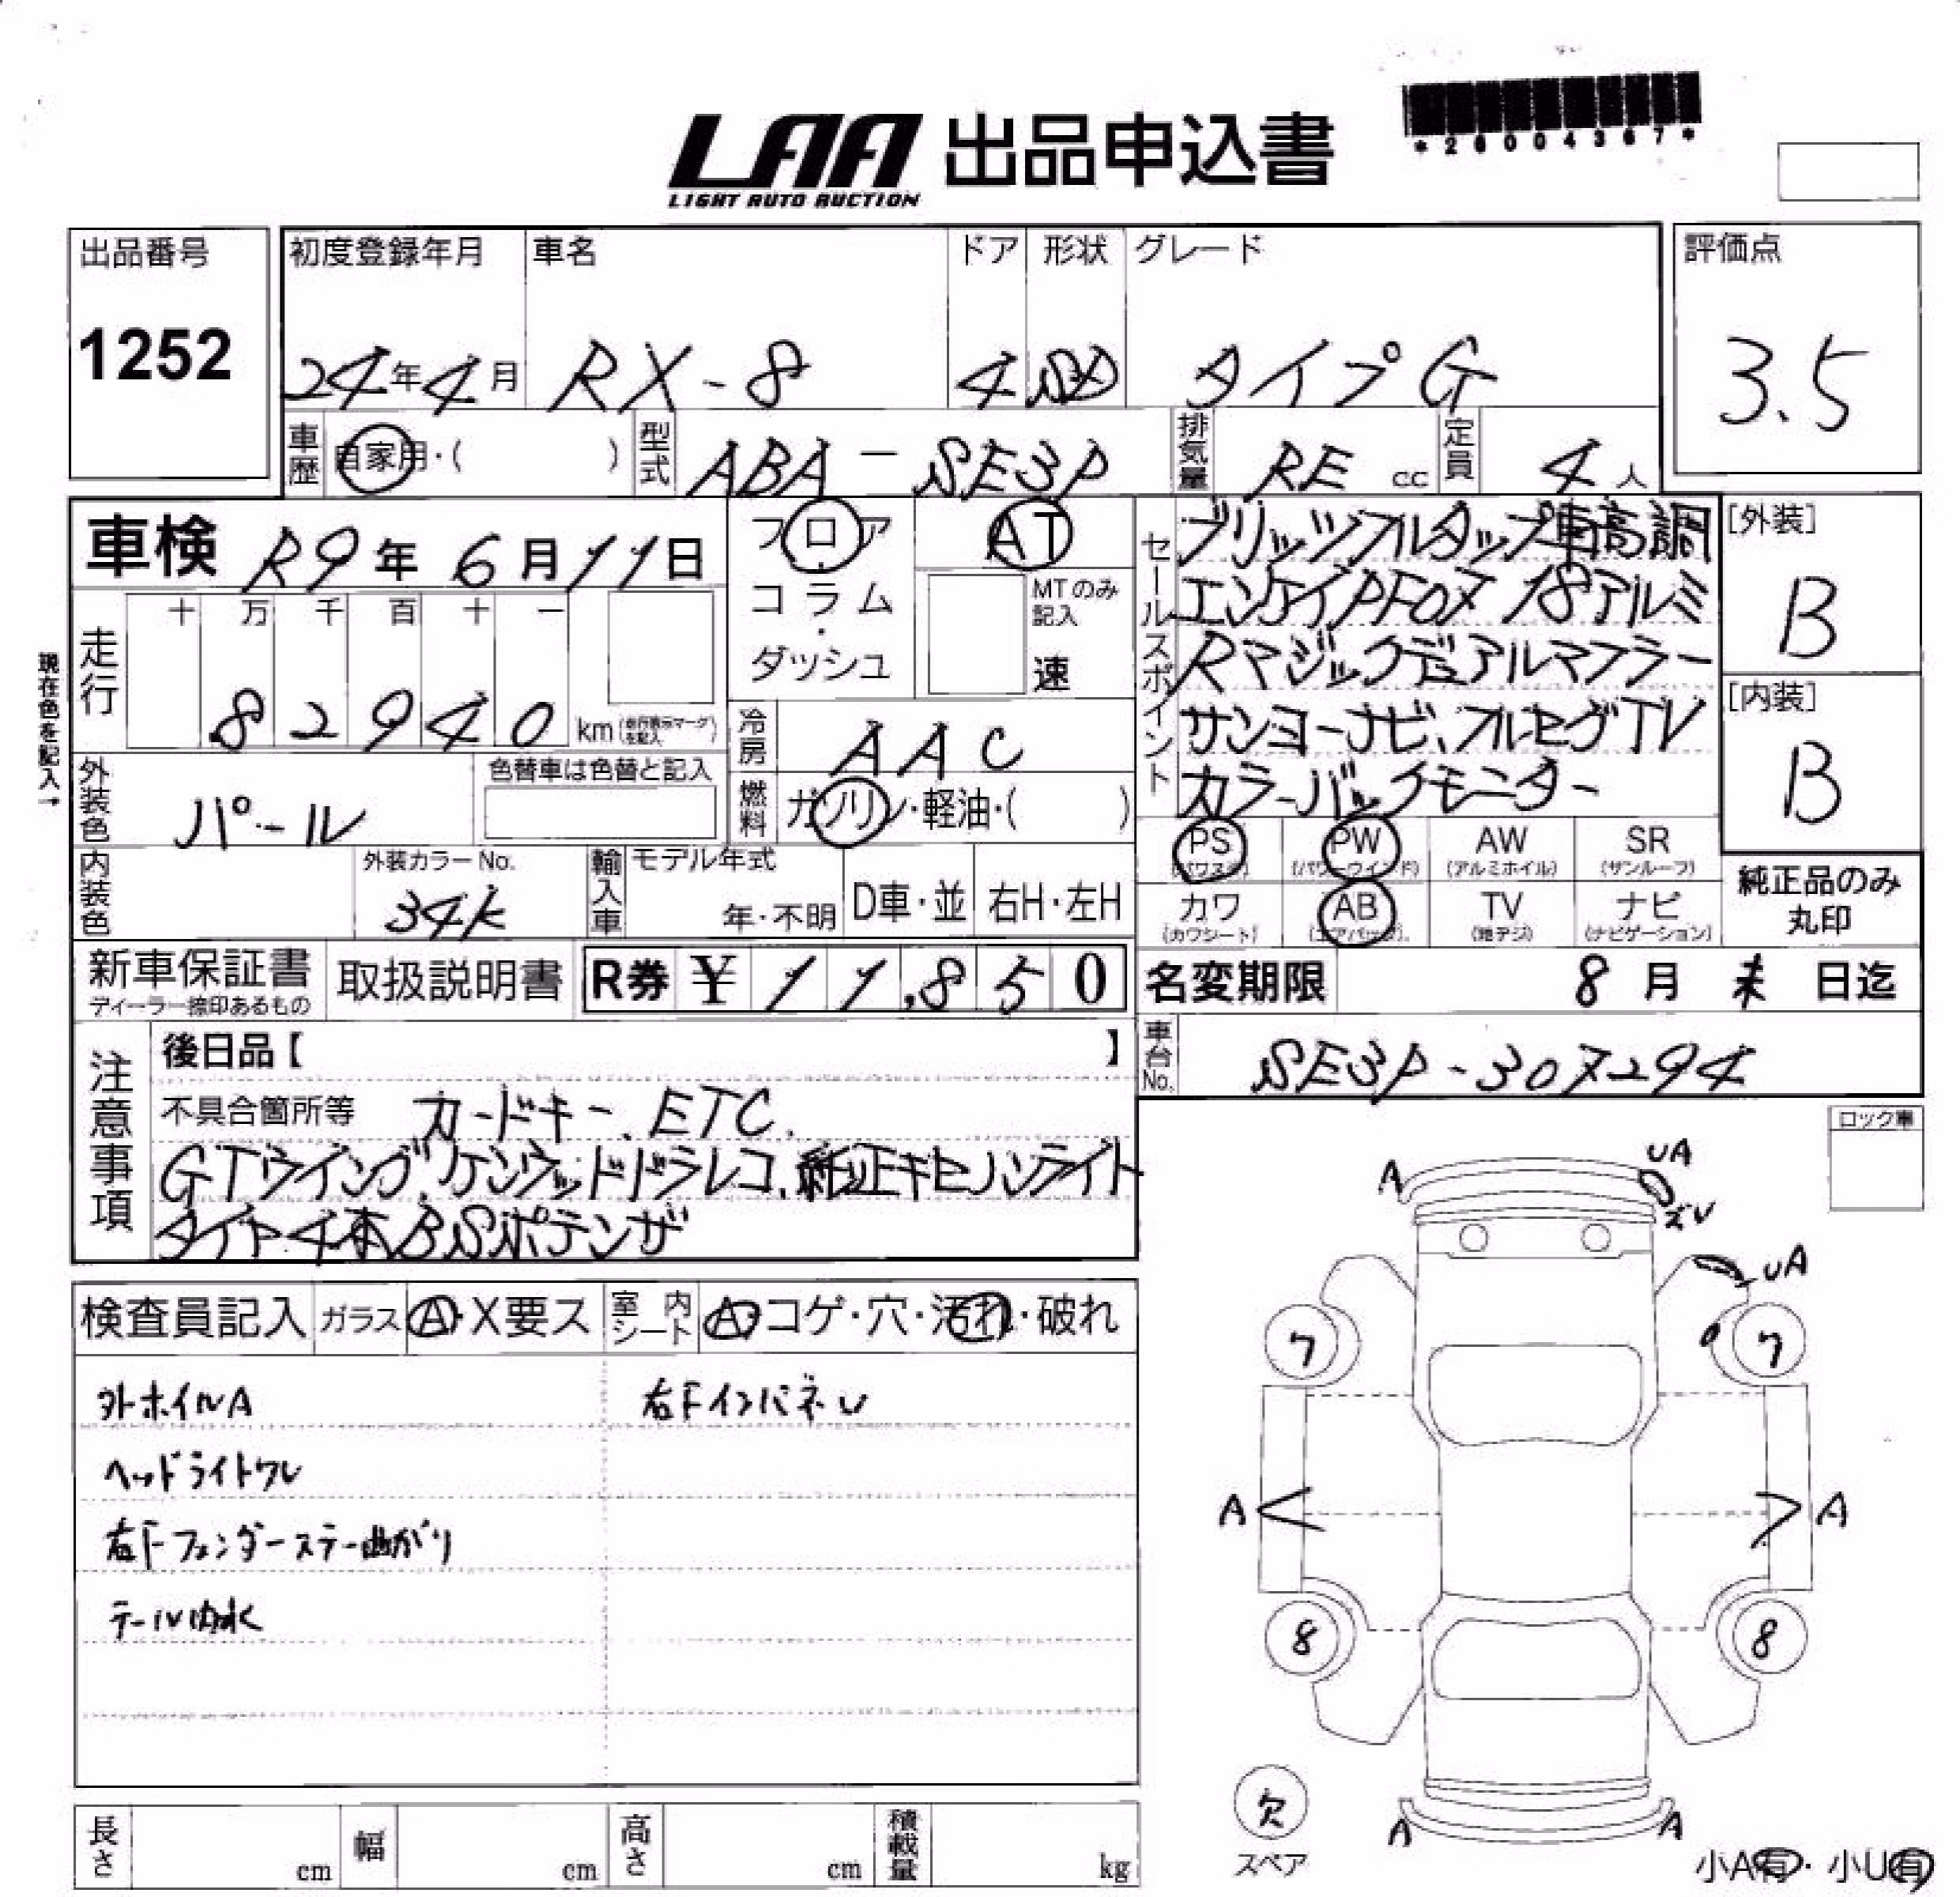 LAA 出品申込書
LIGHT AUTO AUCTION
*26004367*
出品番号 初度登録年月 車名 ドア 形状 グレード 評価点
1252 24年4月 RX-8 4 SD タイプG 3.5
車歴 自家用・( ) 型式 ABA-SE3P 排気量 RE cc 定員 4人
車検 R9年6月11日
フロア AT
コラム・ダッシュ
MTのみ記入
速
セールスポイント
ブリッツフルタップ車高調
エンケイPF07 18アルミ
Rマジックデュアルマフラー
サンヨーナビ、フルセグTV
カラーバックモニター
[外装]
B
[内装]
B
現在色を記入→
走行 十 万 千 百 十 一
82940 km(走行表示マークを記入)
冷房 AAC
外装色 パール 色替車は色替と記入
燃料 ガソリン・軽油・( )
PS (パワステ) PW (パワーウインド) AW (アルミホイル) SR (サンルーフ)
カワ (カワシート) AB (エアバッグ) TV (地デジ) ナビ (ナビゲーション)
純正品のみ
丸印
内装色 外装カラーNo. 34K 輸入車 モデル年式 年・不明 D車・並 右H・左H
新車保証書 ディーラー捺印あるもの 取扱説明書 R券 ¥11,850 名変期限 8月末日迄
車台No. SE3P-307294
注意事項
後日品【 】
不具合箇所等 カードキー、ETC、
GTウイング、ケンウッドドラレコ、純正キセノンライト
タイヤ4本BSポテンザ
ロック車
検査員記入 ガラス A・X要ス 室内シート A・コゲ・穴・汚れ・破れ
外ホイルA 右Fインパネレ
ヘッドライトワレ
右Fフェンダーステー曲がり
テール内水
A UA
ズレ
UA
7 7
A A
8 8
欠
スペア
A A
小A有・小U有
長さ cm 幅 cm 高さ cm 積載量 kg